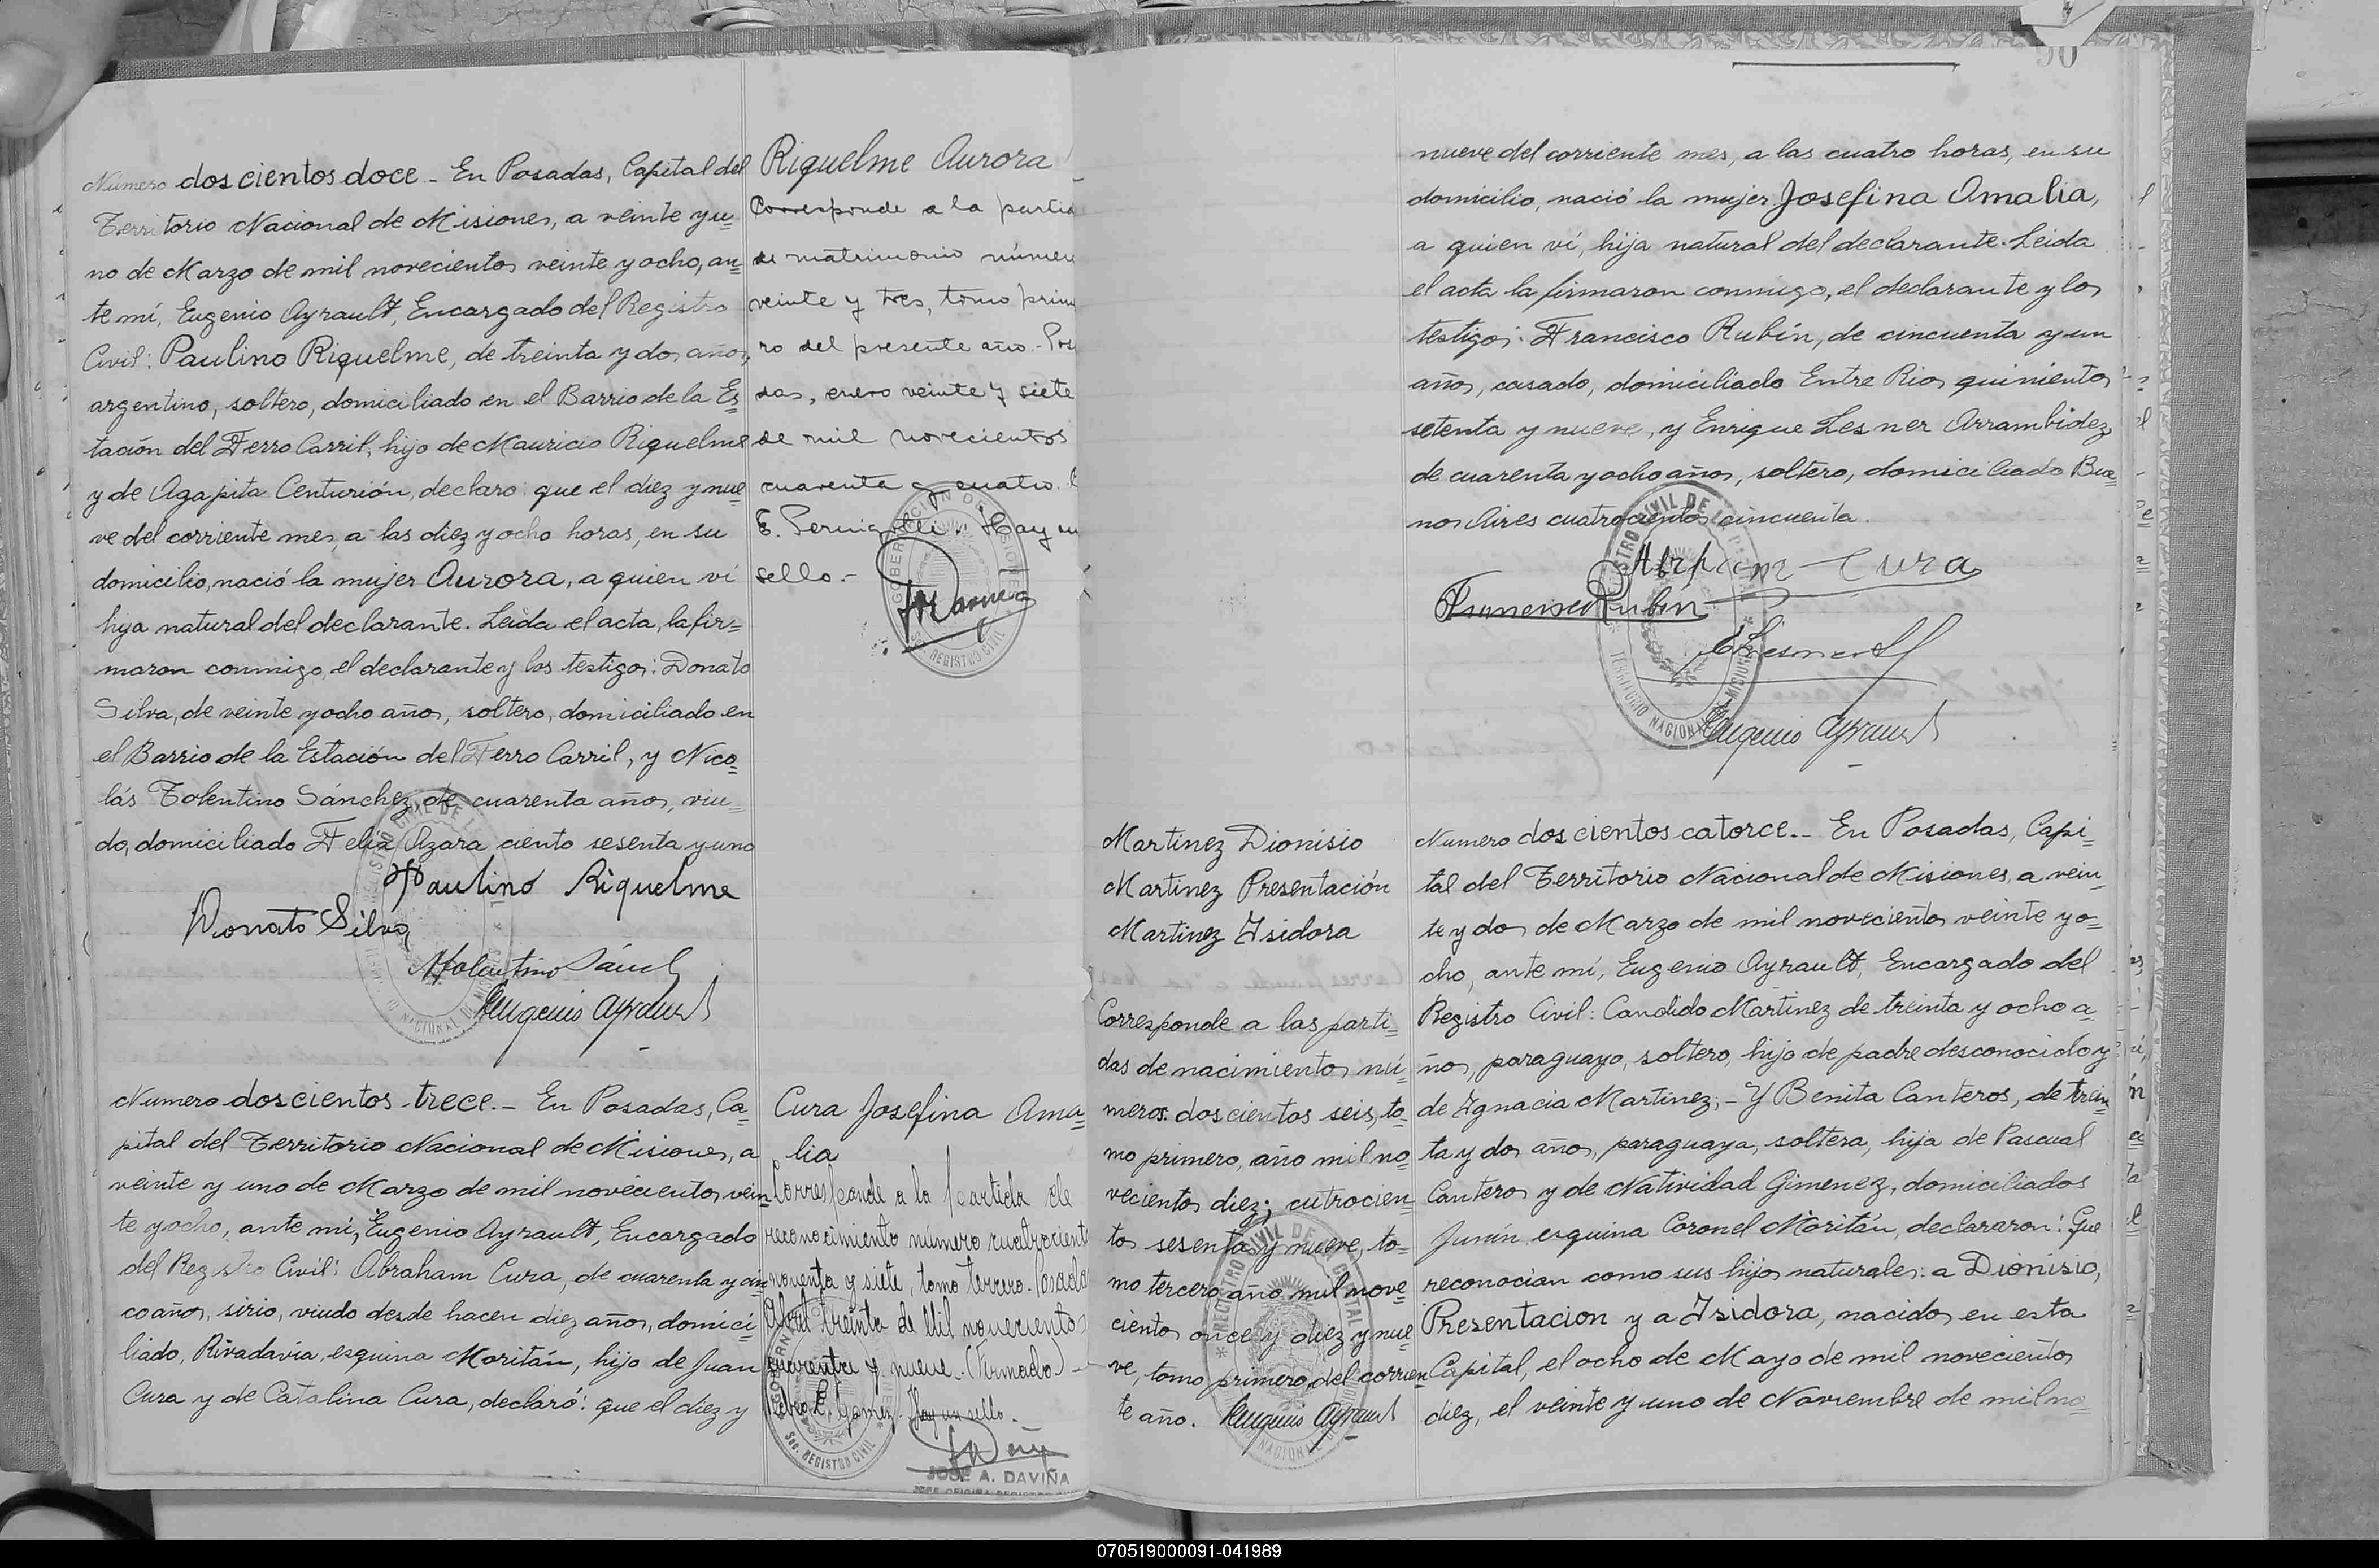 Numero doscientos doce - En Posadas, Capital del
Territorio Nacional de Misiones, a veinte y u=
no de Marzo de mil novecientos veinte y ocho, an=
te mí, Eugenio Ayrault, Encargado del Registro
Civil: Paulino Riquelme, de treinta y dos años,
argentino, soltero, domiciliado en el Barrio de la Es=
tación del Ferro Carril, hijo de Mauricio Riquelme
y de Agapita Centurión, declaro: que el diez y nue=
ve del corriente mes, a las diez y ocho horas, en su
domicilio, nació la mujer Aurora, a quien ví
hija natural del declarante. Leida el acta, la fir=
maron conmigo, el declarante y los testigos: Donato
Silva, de veinte y ocho años, soltero, domiciliado en
el Barrio de la Estación del Ferro Carril, y Nico=
lás Tolentino Sánchez, de cuarenta años, viu=
do, domiciliado Felix Azara ciento sesenta y uno
Paulino Riquelme
Donato Silva
NTolentino Sánch
Eugenio Ayrault
Riquelme Aurora
Corresponde a la partid
de matrimonio númer
veinte y tres, tomo prim
ro del presente año.- Pos
das, enero veinte y siete
de mil novecientos
cuarenta y cuatro.
Hay un
sello.-
SEC. REGISTRO CIVIL
Numero doscientos trece.- En Posadas, Ca=
pital del Territorio Nacional de Misiones, a
veinte y uno de Marzo de mil novecientos vein=
te y ocho, ante mí, Eugenio Ayrault, Encargado
del Registro Civil: Abraham Cura, de cuarenta y cin=
co años, sirio, viudo desde hacen diez años, domici=
liado, Rivadavia, esquina Moritán, hijo de Juan
Cura y de Catalina Cura, declaró: que el diez y
Cura Josefina Ama=
lia
Corresponde a la partida de
reconocimiento número cuatrocient
noventa y siete, tomo tercero. Posadas
Abril treinta de Mil novecientos
cuarenta y nueve. (Firmado) -
Pedro L. Gomez. Hay un sello.-
SEC. REGISTRO CIVIL
JOSÉ A. DAVIÑA
90
nueve del corriente mes, a las cuatro horas, en su
domicilio, nació la mujer Josefina Amalia,
a quien ví, hija natural del declarante. Leida
el acta la firmaron conmigo, el declarante y los
testigos: Francisco Rubín, de cincuenta y un
años, casado, domiciliado Entre Rios quinientos
setenta y nueve, y Enrique Lesner Arrambidez,
de cuarenta y ocho años, soltero, domiciliado Bue=
nos Aires cuatrocientos cincuenta.
Abraam Cura
Francisco Rubín
ELesnerA
Eugenio Ayrault
Martinez Dionisio
Martinez Presentación
Martinez Isidora
Corresponde a las parti=
das de nacimientos nú=
meros: doscientos seis, to=
mo primero, año mil no=
vecientos diez; cutrocien=
tos sesenta y nueve, to=
mo tercero año mil nove=
cientos once y diez y nue
ve, tomo primero, del corrien
te año. Eugenio Ayrault
Numero doscientos catorce.- En Posadas, Capi=
tal del Territorio Nacional de Misiones, a vein=
te y dos de Marzo de mil novecientos veinte y o=
cho, ante mí, Eugenio Ayrault, Encargado del
Registro Civil: Candido Martinez de treinta y ocho a=
ños, paraguayo, soltero, hijo de padre desconocido y
de Ignacia Martinez; - Y Benita Canteros, de trein=
ta y dos años, paraguaya, soltera, hija de Pascual
Canteros y de Natividad Gimenez, domiciliados
Junín esquina Coronel Moritán, declararon: Que
reconocian como sus hijos naturales: a Dionisio,
Presentacion y a Isidora, nacidos en esta
Capital, el ocho de Mayo de mil novecientos
diez, el veinte y uno de Noviembre de mil no=
070519000091-041989